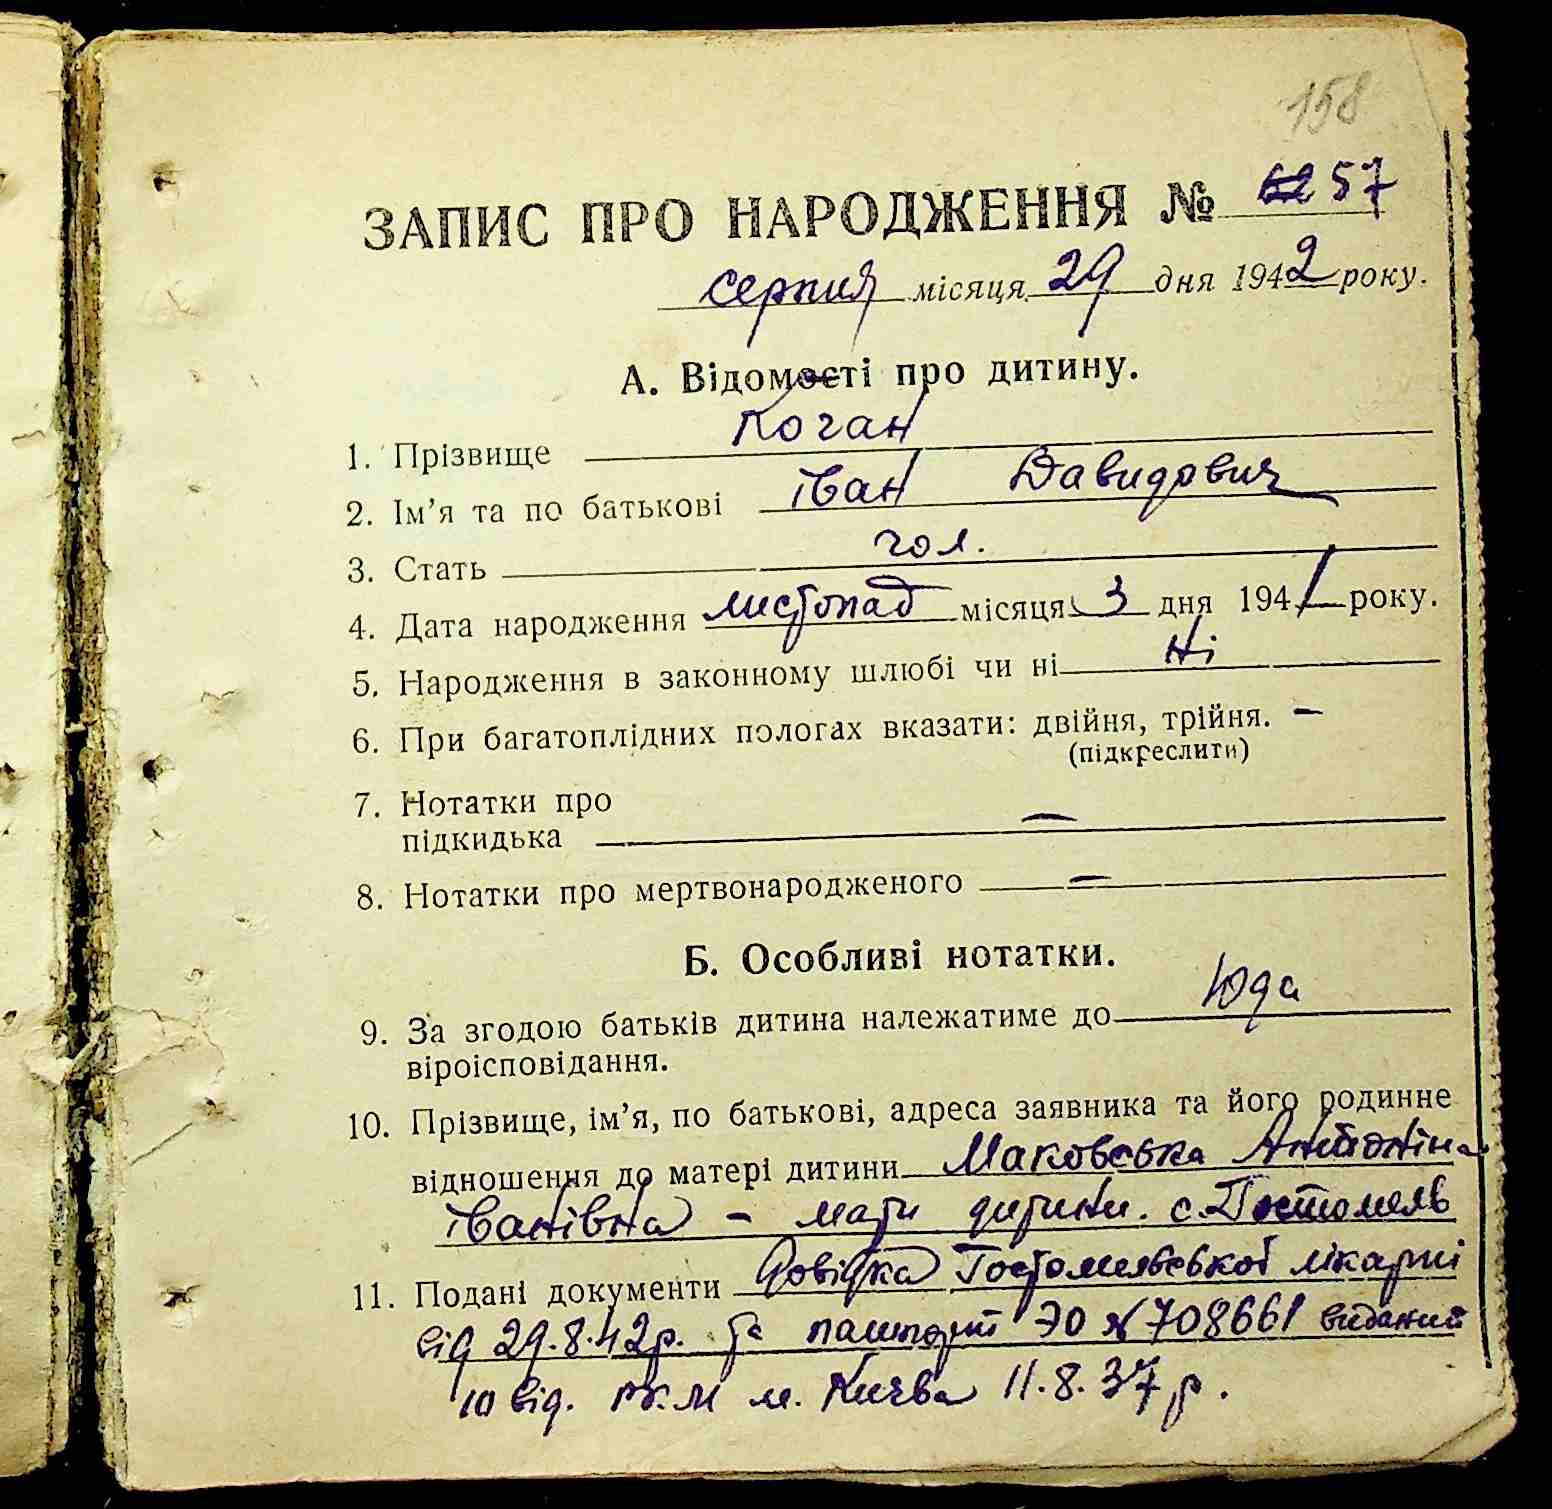 158
ЗАПИС ПРО НАРОДЖЕННЯ № 57
серпня місяця 29 дня 1942 року.
А. Відомості про дитину.
1. Прізвище Коган
2. Ім'я та по батькові Іван Давидович
3. Стать чол.
4. Дата народження листопад місяця 3 дня 1941 року.
5. Народження в законному шлюбі чи ні Ні
6. При багатоплідних пологах вказати: двійня, трійня. —
(підкреслити)
7. Нотатки про
підкидька —
8. Нотатки про мертвонародженого —
Б. Особливі нотатки.
9. За згодою батьків дитина належатиме до Юда
віроісповідання.
10. Прізвище, ім'я, по батькові, адреса заявника та його родинне
відношення до матері дитини Маковська Антоніна
Іванівна – мати дитини. с. Гостомель
11. Подані документи Довідка Гостомельської лікарні
від 29.8.42р. та пашпорт ЭО № 708661 виданий
10 від. РК.М м. Києва 11.8.37 р.